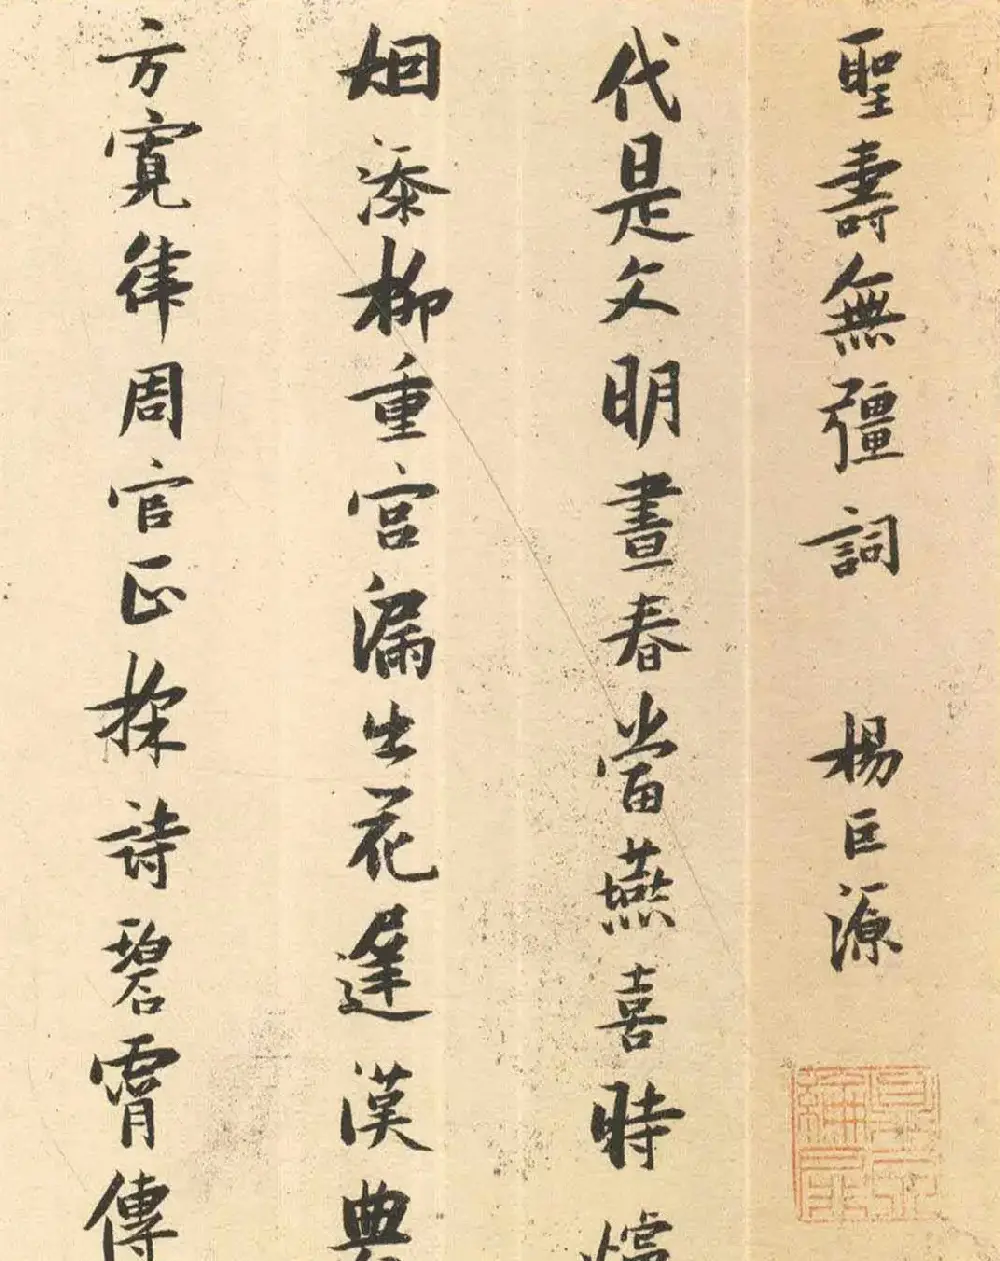 聖壽無疆詞 楊巨源
代是文明晝春當燕喜時爐
烟添柳重宮漏出花遲漢典
方寛律周官正採詩碧霄傳